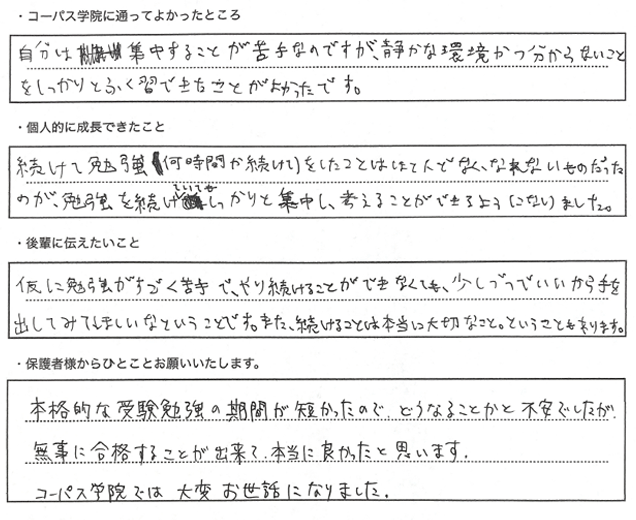 ・コーパス学院に通ってよかったところ
自分は集中することが苦手なのですが、静かな環境かつ分からないこと
をしっかりとふく習できたことがよかったです。
・個人的に成長できたこと
続けて勉強(何時間か続けて)をしたことはほとんどなく、なれないものだった
のが、勉強を続けていてもしっかりと集中し、考えることができるようになりました。
・後輩に伝えたいこと
仮に勉強がすごく苦手で、やり続けることができなくても、少しづつでいいから手を
出してみてほしいなということです。また、続けることは本当に大切なこと。ということもあります。
・保護者様からひとことお願いいたします。
本格的な受験勉強の期間が短かったので、どうなることかと不安でしたが
無事に合格することが出来て、本当に良かったと思います。
コーパス学院では大変お世話になりました。